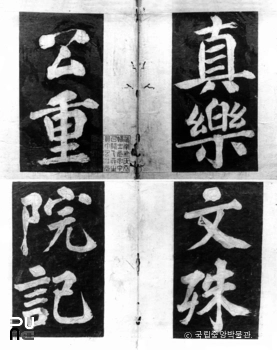 真樂
公重
文殊
院記
© 국립중앙박물관